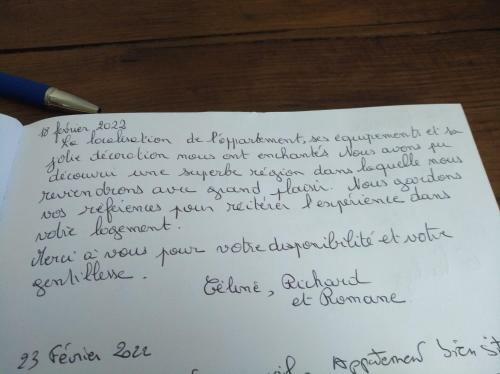 18 février 2022
La localisation de l'appartement, ses équipements et sa
jolie décoration nous ont enchantés. Nous avons pu
découvrir une superbe région dans laquelle nous
reviendrons avec grand plaisir. Nous gardons
vos références pour réitérer l'expérience dans
votre logement.
Merci à vous pour votre disponibilité et votre
gentillesse.
Céline, Richard
et Romane.
23 Février 2022
Appartement bien